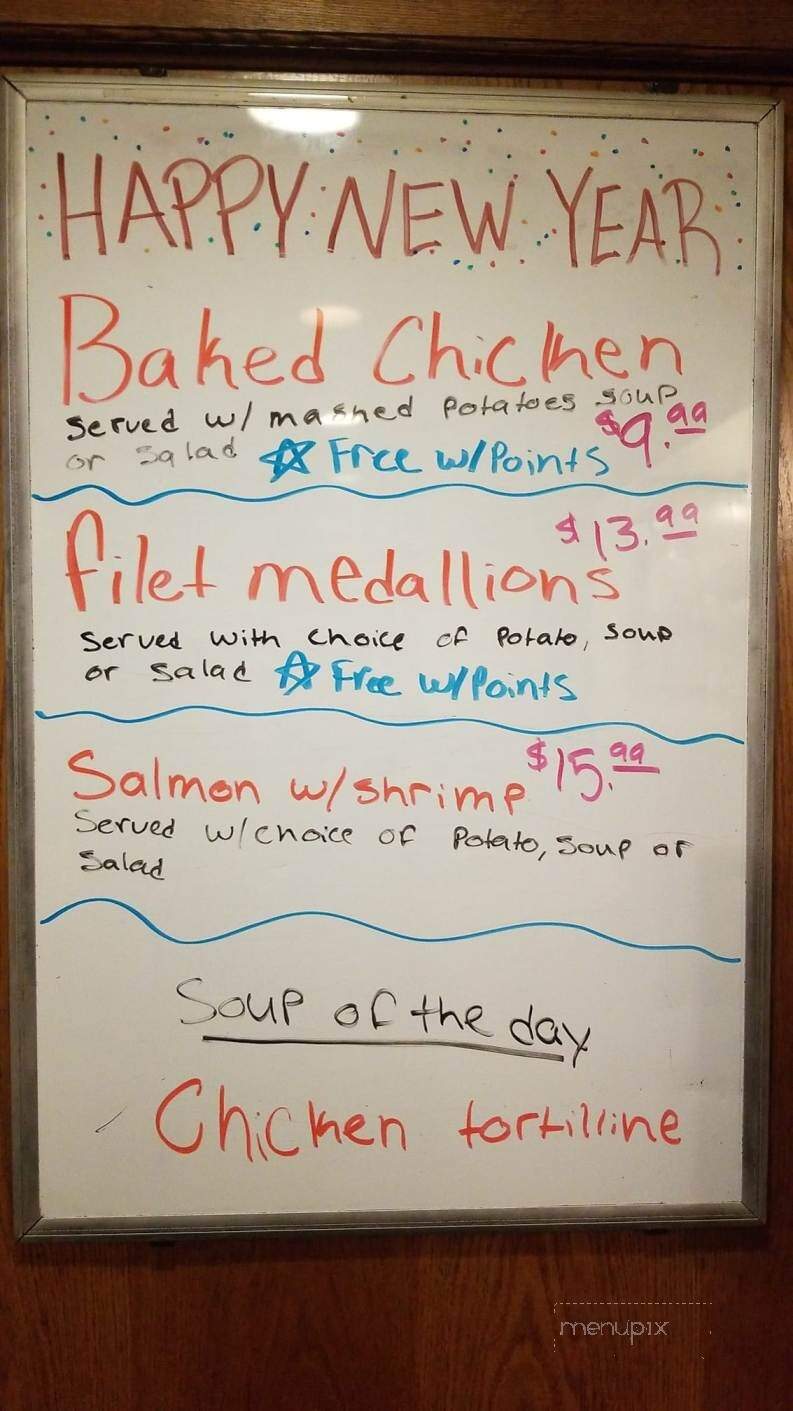 HAPPY NEW YEAR
Baked Chicken
served w/ mashed potatoes soup
or salad ☆ Free w/Points $9.99
filet medallions $13.99
served with choice of potato, soup
or salad ☆ Free w/Points
Salmon w/shrimp $15.99
Served w/choice of potato, soup or
salad
Soup of the day
Chicken tortilline
menupix